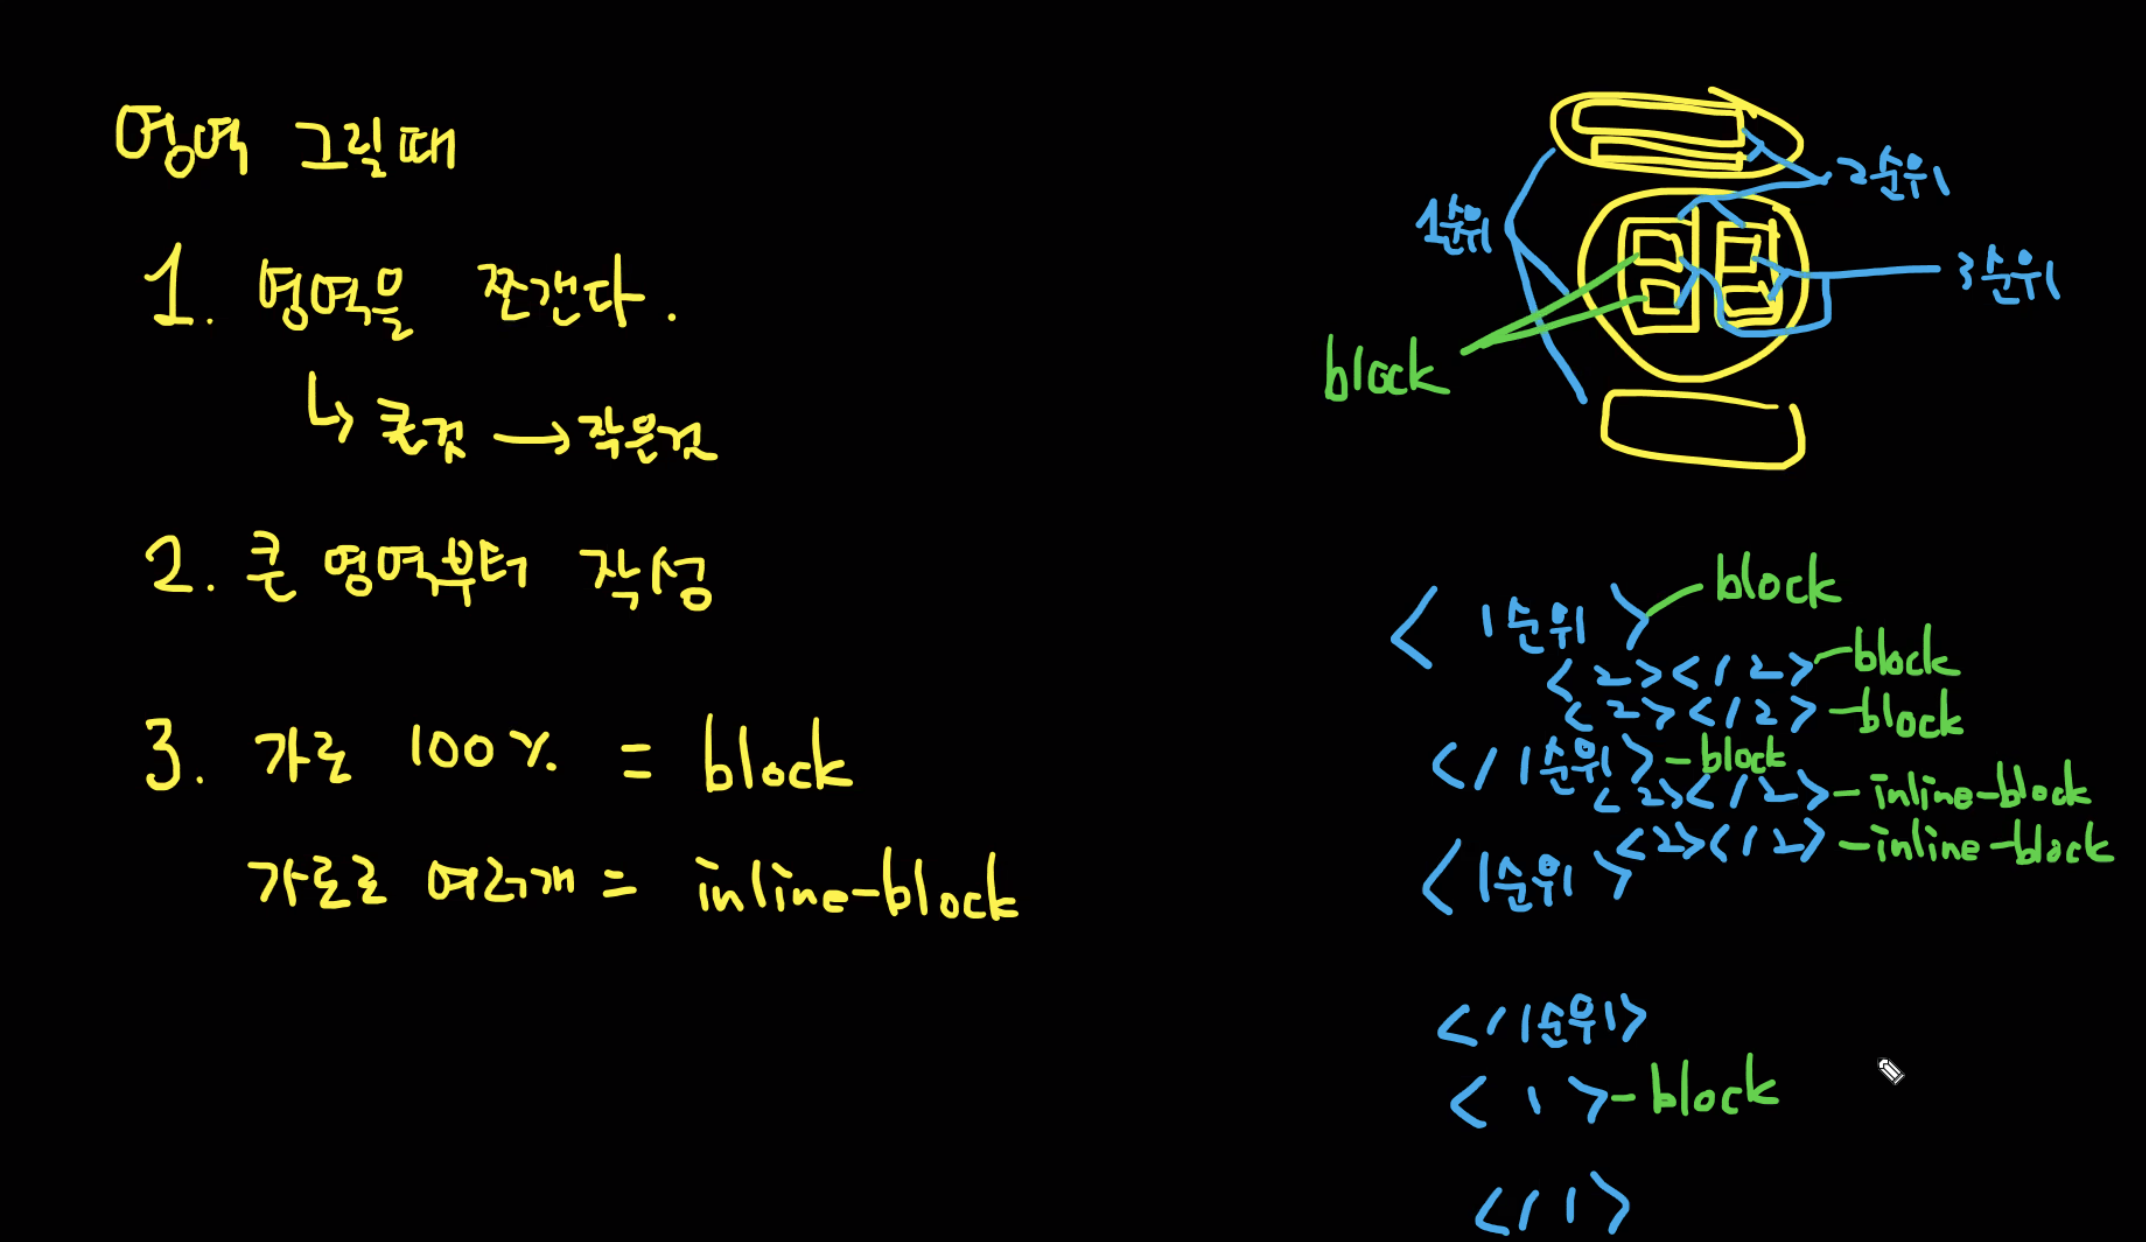 영역 그릴때
1. 영역을 쪼갠다.
↳ 큰것 → 작은것
2. 큰 영역부터 작성
3. 가로 100% = block
가로로 여러개 = inline-block
2순위
1순위
3순위
block
< 1순위 > block
< 2 > < / 2 > - block
< 2 > < / 2 > - block
< / 1순위 > - block
< 2 > < / 2 > - inline-block
< 2 > < / 2 > - inline-block
< 1순위 >
< / 1순위 >
< 1 > - block
< / 1 >